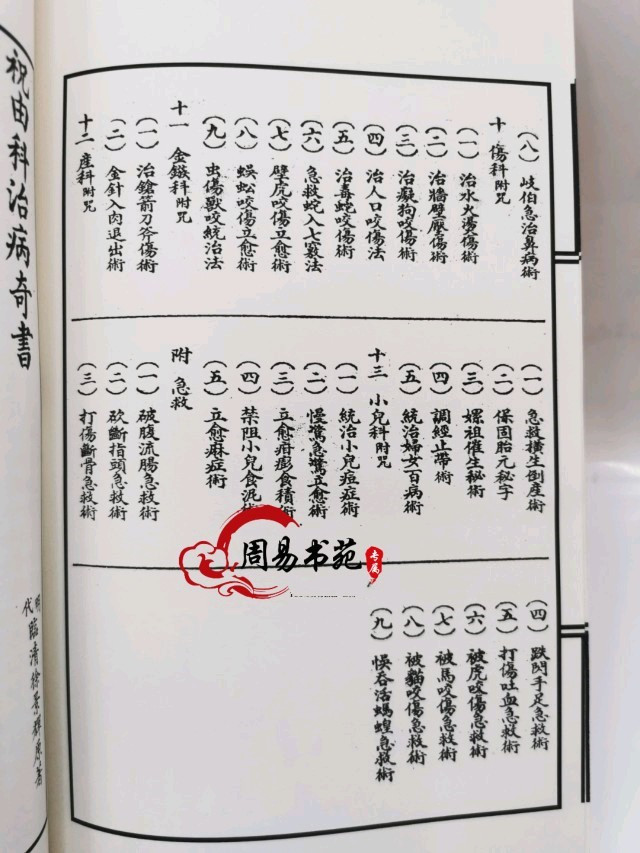 (八)岐伯急治鼻病術
十 傷科附咒
(一)治水火燙傷術
(二)治牆壁壓傷術
(三)治癡狗咬傷術
(四)治人口咬傷法
(五)治毒蛇咬傷術
(六)急救蛇入七竅法
(七)壁虎咬傷立愈術
(八)蜈蚣咬傷立愈術
(九)出傷獸咬統治法
十一 金鏃科附咒
(一)治鎗箭刀斧傷術
(二)金針入肉退出術
十二 產科附咒
(一)急救橫生倒產術
(二)保固胎元秘字
(三)嫘祖催生秘術
(四)調經止帶術
(五)統治婦女百病術
十三 小兒科附咒
(一)統治小兒痘症術
(二)慢驚急驚立愈術
(三)立愈疳膨食積術
(四)禁阻小兒食泥術
(五)立愈麻症術
附 急救
(一)破腹流腸急救術
(二)砍斷指頭急救術
(三)打傷斷骨急救術
(四)跌閃手足急救術
(五)打傷吐血急救術
(六)被虎咬傷急救術
(七)被馬咬傷急救術
(八)被貓咬傷急救術
(九)悞吞活螞蝗急救術
祝由科治病奇書
明代臨清徐景輝原著
周易书苑
专属